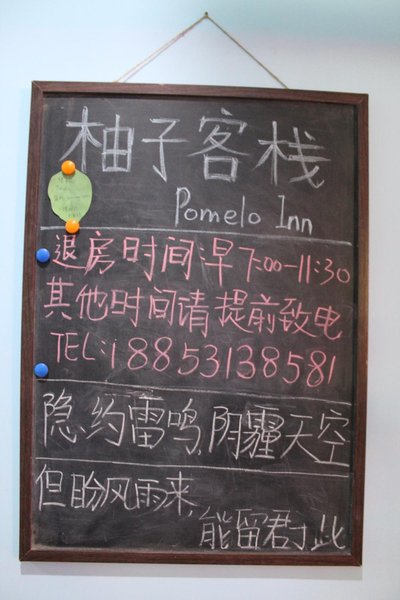 柚子客栈
Pomelo Inn
退房时间早7:00-11:30
其他时间请提前致电
TEL:18853138581
隐约雷鸣,阴霾天空
但盼风雨来,
能留君于此